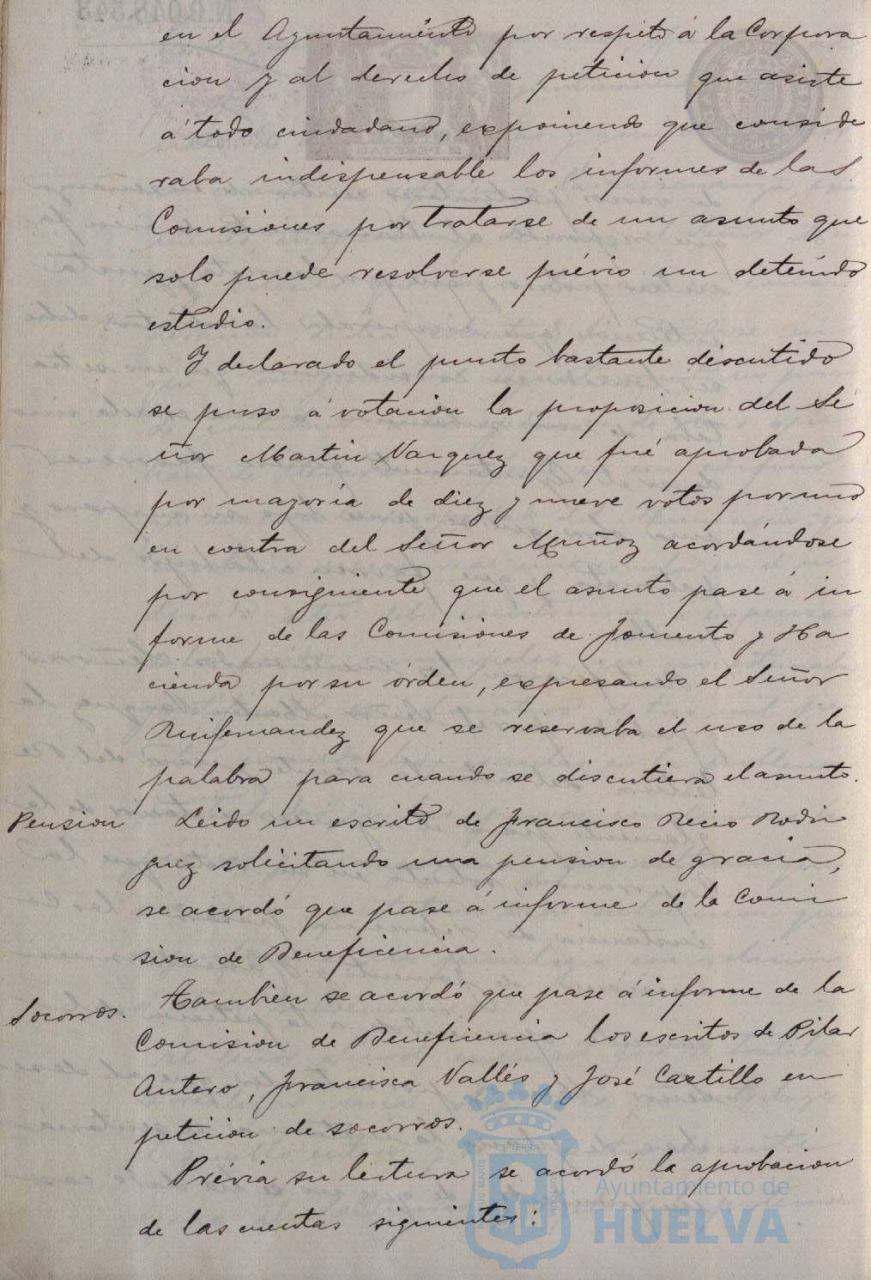 en el Ayuntamiento por respeto á la Corpora
cion y al derecho de peticion que asiste
á todo ciudadano, exponiendo que conside
raba indispensable los informes de las
Comisiones por tratarse de un asunto que
solo puede resolverse prévio un detenido
estudio.
Y declarado el punto bastante discutido
se puso á votacion la proposicion del Se
ñor Martin Vazquez que fué aprobada
por mayoría de diez y nueve votos por uno
en contra del Señor Muñoz acordándose
por consiguiente que el asunto pase á in
forme de las Comisiones de Fomento y Ha
cienda por su órden, expresando el Señor
Ruifernandez que se reservaba el uso de la
palabra para cuando se discutiera el asunto.
Pension Leido un escrito de Francisco Recio Rodri
guez solicitando una pension de gracia,
se acordó que pase á informe de la Comi
sion de Beneficencia.
Socorros. Tambien se acordó que pase á informe de la
Comision de Beneficencia los escritos de Pilar
Antero, Francisca Vallés y José Castillo en
peticion de socorros.
Prévia su lectura se acordó la aprobacion
de las cuentas siguientes:
Ayuntamiento de
HUELVA